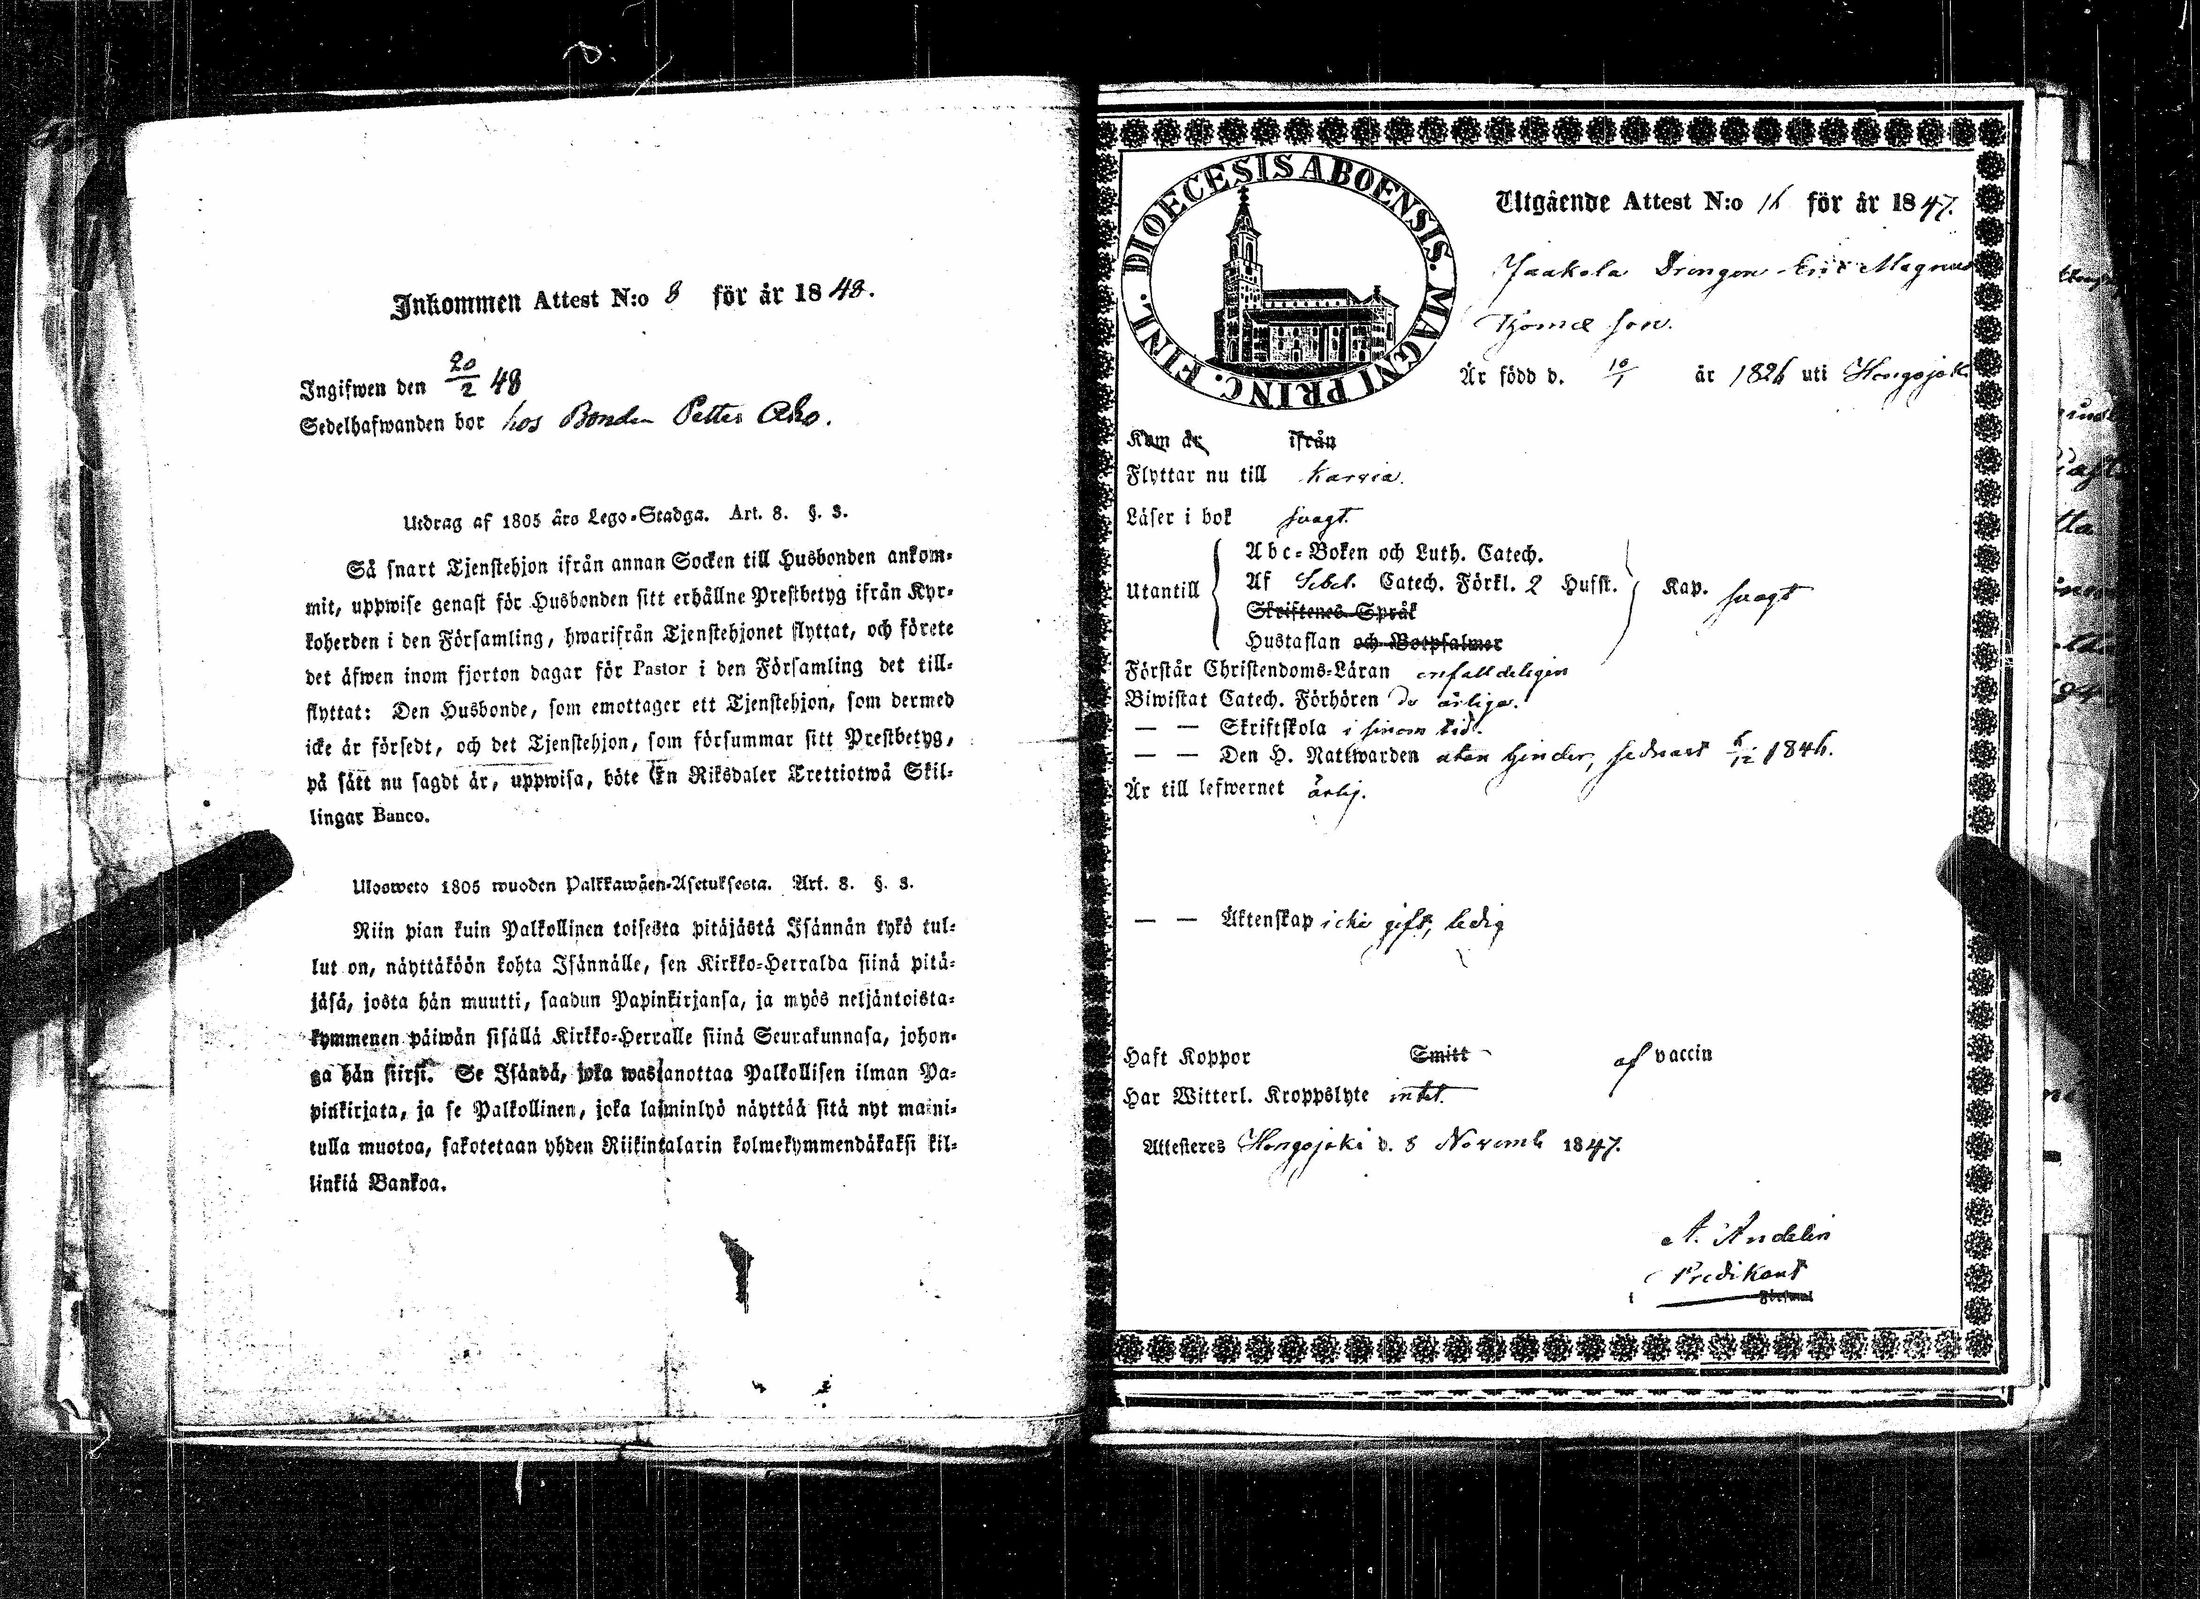 Inkommen Attest N:o 8 för år 1848.
Ingifwen den 20/2 48
Sedelhafwanden bor hos Bonden Petter Aho.
Utdrag af 1805 års Lego-Stadga. Art. 8. §. 3.
Så snart Tjenstehjon ifrån annan Socken till Husbonden ankom-
mit, uppwise genast för Husbonden sitt erhållne Prestbetyg ifrån Kyr-
koherden i den Församling, hwarifrån Tjenstehjonet flyttat, och förete
det äfwen inom fjorton dagar för Pastor i den Församling det till-
flyttat: Den Husbonde, som emottager ett Tjenstehjon, som dermed
icke är försedt, och det Tjenstehjon, som försummar sitt Prestbetyg,
på sätt nu sagdt är, uppwisa, böte En Riksdaler Trettiotwå Skil-
lingar Banco.
Ulosweto 1805 wuoden Palkkawäen-Asetuksesta. Art. 8. §. 3.
Niin pian kuin Palkollinen toisesta pitäjästä Isännän tykö tul-
lut on, näyttäköön kohta Isännälle, sen Kirkko-Herralda siinä pitä-
jäsä, josta hän muutti, saadun Papinkirjansa, ja myös neljäntoista-
kymmenen päiwän sisällä Kirkko-Herralle siinä Seurakunnasa, johon-
ga hän siirsi. Se Isändä, joka wastanottaa Palkollisen ilman Pa-
pinkirjata, ja se Palkollinen, joka laiminlyö näyttää sitä nyt maini-
tulla muotoa, sakotetaan yhden Riikintalarin kolmekymmendäkaksi kil-
linkiä Bankoa.
DIOECESIS ABOENSIS. MAGNI PRINC. FINL.
Utgående Attest N:o 16 för år 1847.
Jaakola Drengen Eric Magnus
Thomæ son.
Är född d. 10/1 år 1826 uti Hongojoki
Kom år ifrån
Flyttar nu till Karvia.
Läser i bok svagt.
Abc-Boken och Luth. Catech.
Utantill Af Sebel. Catech. Förkl. 2 Hufst. Kap. svagt
Skriftenes Språk
Hustaflan och Botpsalmer
Förstår Christendoms-Läran enfalldeligen
Biwistat Catech. Förhören do årliga.
— — Skriftskola i sinom tid.
— — Den H. Nattwarden utan hinder, sednast 6/12 1846.
Är till lefwernet ärlig.
— — Äktenskap icke gift, ledig
Haft Koppor Smitt af vaccin
Har Witterl. Kroppslyte intet.
Attesteres Hongojoki d. 8 Novemb 1847.
A. Andelin
Predikant
i Församl